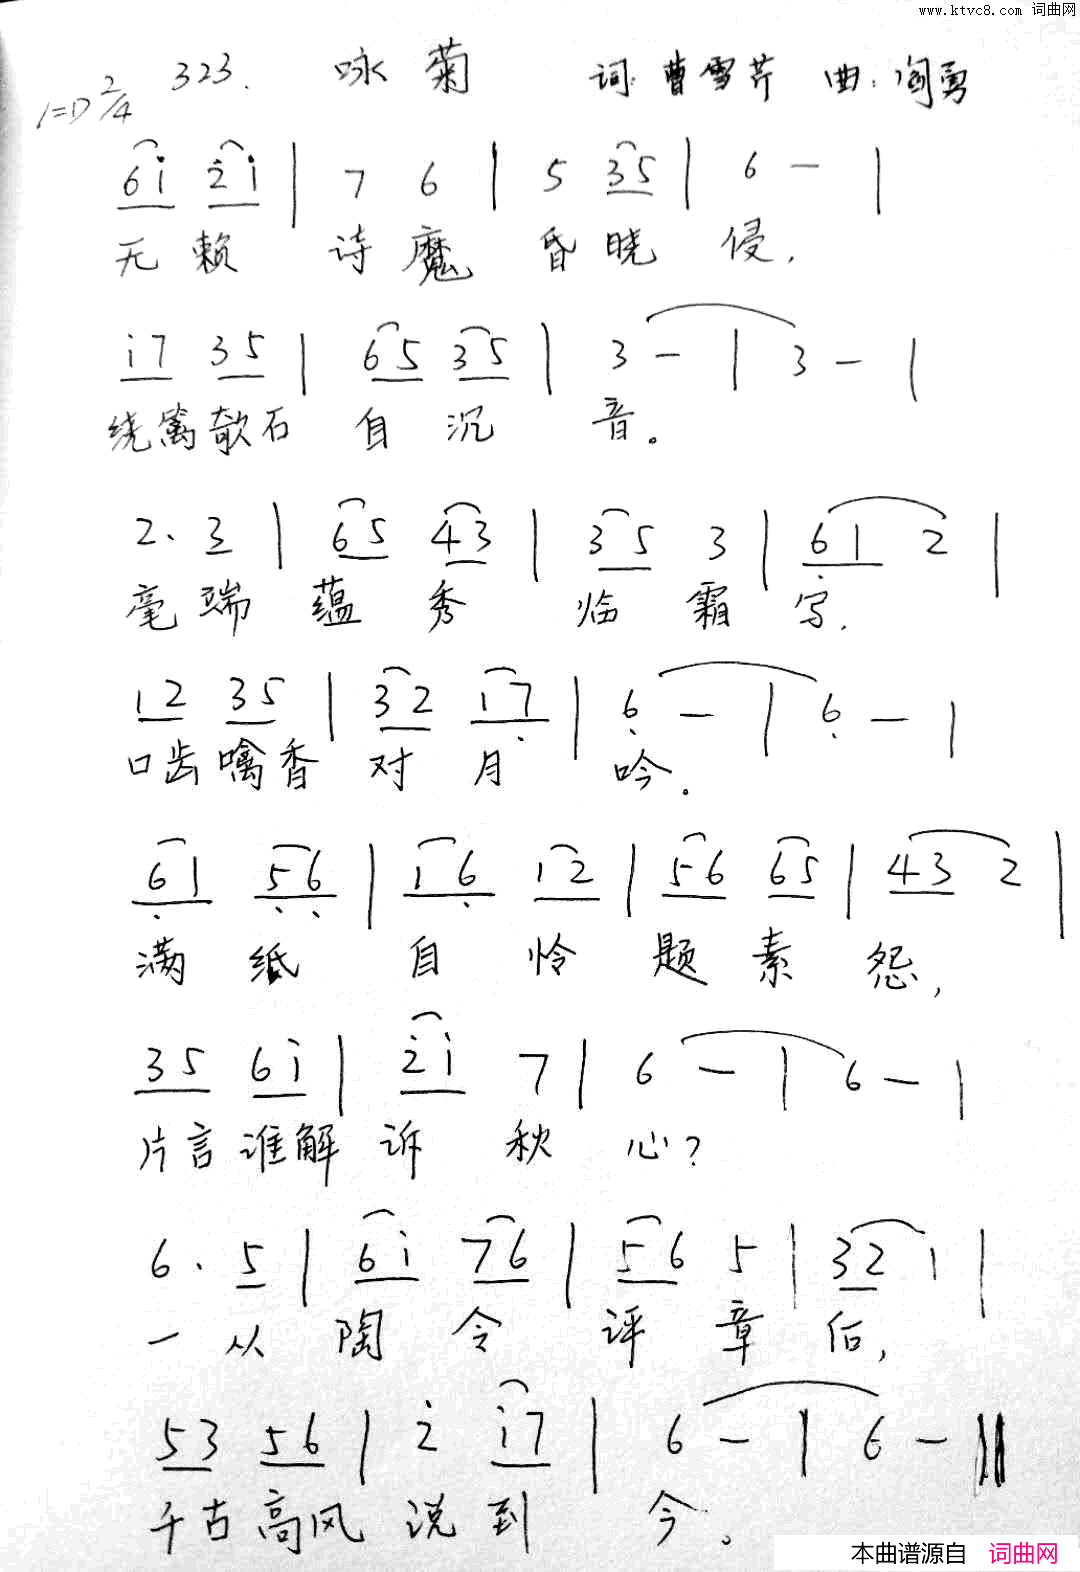 www.ktvc8.com 词曲网
323. 咏菊 词:曹雪芹 曲:阎勇
1=D 2/4
6i 2i | 7 6 | 5 35 | 6 - |
无赖 诗魔 昏晓 侵,
i7 35 | 65 35 | 3 - | 3 - |
绕篱欹石 自沉 音。
2. 3 | 65 43 | 35 3 | 61 2 |
毫端 蕴秀 临霜 写.
12 35 | 32 17 | 6 - | 6 - |
口齿噙香 对月 吟。
61 56 | 16 12 | 56 65 | 43 2 |
满纸 自怜 题素 怨,
35 6i | 2i 7 | 6 - | 6 - |
片言谁解 诉秋 心?
6. 5 | 6i 76 | 56 5 | 32 1 |
一从 陶令 评章 后,
53 56 | 2 i7 | 6 - | 6 - ||
千古高风 说到 今。
本曲谱源自 词曲网